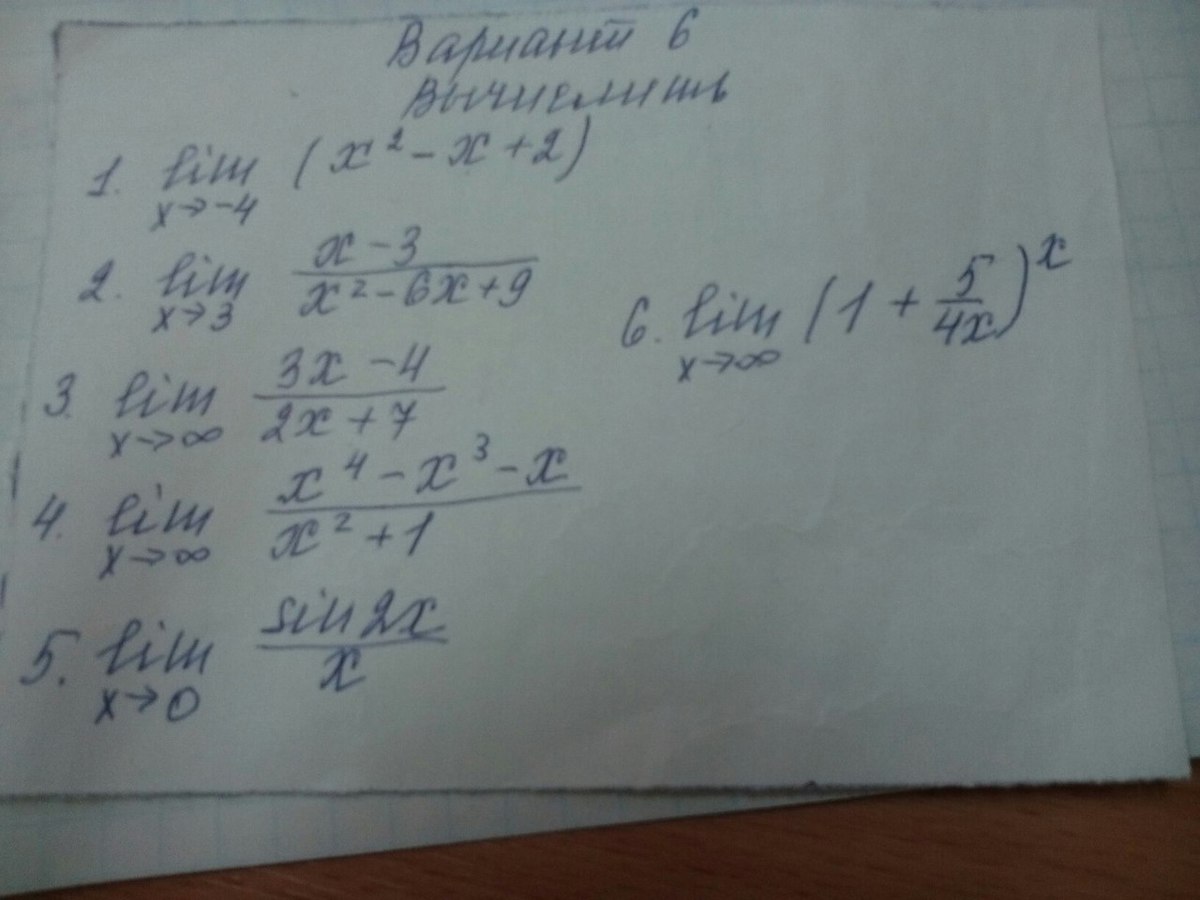 Вариант 6
Вычислить
1. lim x→-4 (x² - x + 2)
2. lim x→3 (x - 3)/(x² - 6x + 9)
3. lim x→∞ (3x - 4)/(2x + 7)
4. lim x→∞ (x⁴ - x³ - x)/(x² + 1)
5. lim x→0 sin 2x/x
6. lim x→∞ (1 + 5/4x)ˣ